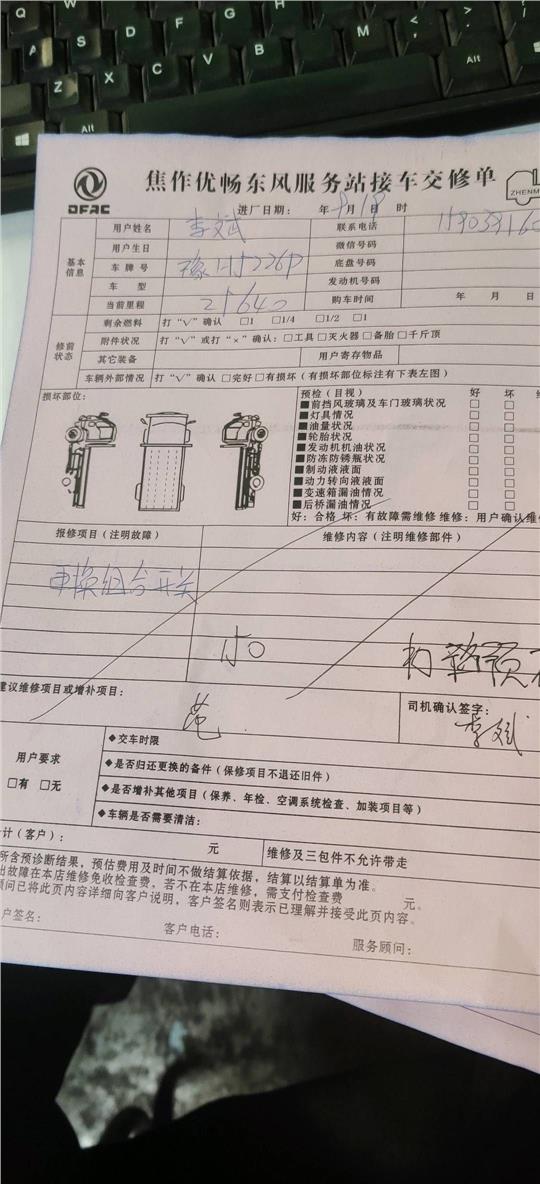 Q W E R T Y U
A S D F G H
Z X C V B N M
Alt
Alt
DFAC
焦作优畅东风服务站接车交修单
ZHENM
进厂日期： 年 9月18日 时
基本信息
用户姓名 李斌 联系电话
用户生日 微信号码
车牌号 底盘号码
车型 发动机号码
当前里程 21640 购车时间 年 月 日
修前状态
剩余燃料 打“√”确认 □1 □1/4 □1/2 □1
附件状况 打“√”或打“×”确认：□工具□灭火器□备胎□千斤顶
其它装备 用户寄存物品
车辆外部情况 打“√”确认 □完好□有损坏（有损坏部位标注有下表左图）
损坏部位：
预检（目视） 好 坏 维
■前挡风玻璃及车门玻璃状况 □ □
■灯具情况 □ □
■油量状况 □ □
■轮胎状况 □ □
■发动机机油状况 □ □
■防冻防锈瓶状况 □ □
■制动液液面 □ □
■动力转向液液面 □ □
■变速箱漏油情况 □ □
■后桥漏油情况 □ □
好：合格 坏：有故障需维修 维修：用户确认维
报修项目（注明故障） 维修内容（注明维修部件）
更换组合开关
建议维修项目或增补项目：
范
司机确认签字：
李斌
用户要求
□有 □无
◆交车时限
◆是否归还更换的备件（保修项目不退还旧件）
◆是否增补其他项目（保养、年检、空调系统检查、加装项目等）
◆车辆是否需要清洁：
计（客户）： 元 维修及三包件不允许带走
所含预诊断结果，预估费用及时间不做结算依据，结算以结算单为准。
出故障在本店维修免收检查费，若不在本店维修，需支付检查费 元。
顾问已将此页内容详细向客户说明，客户签名则表示已理解并接受此页内容。
户签名： 客户电话： 服务顾问：